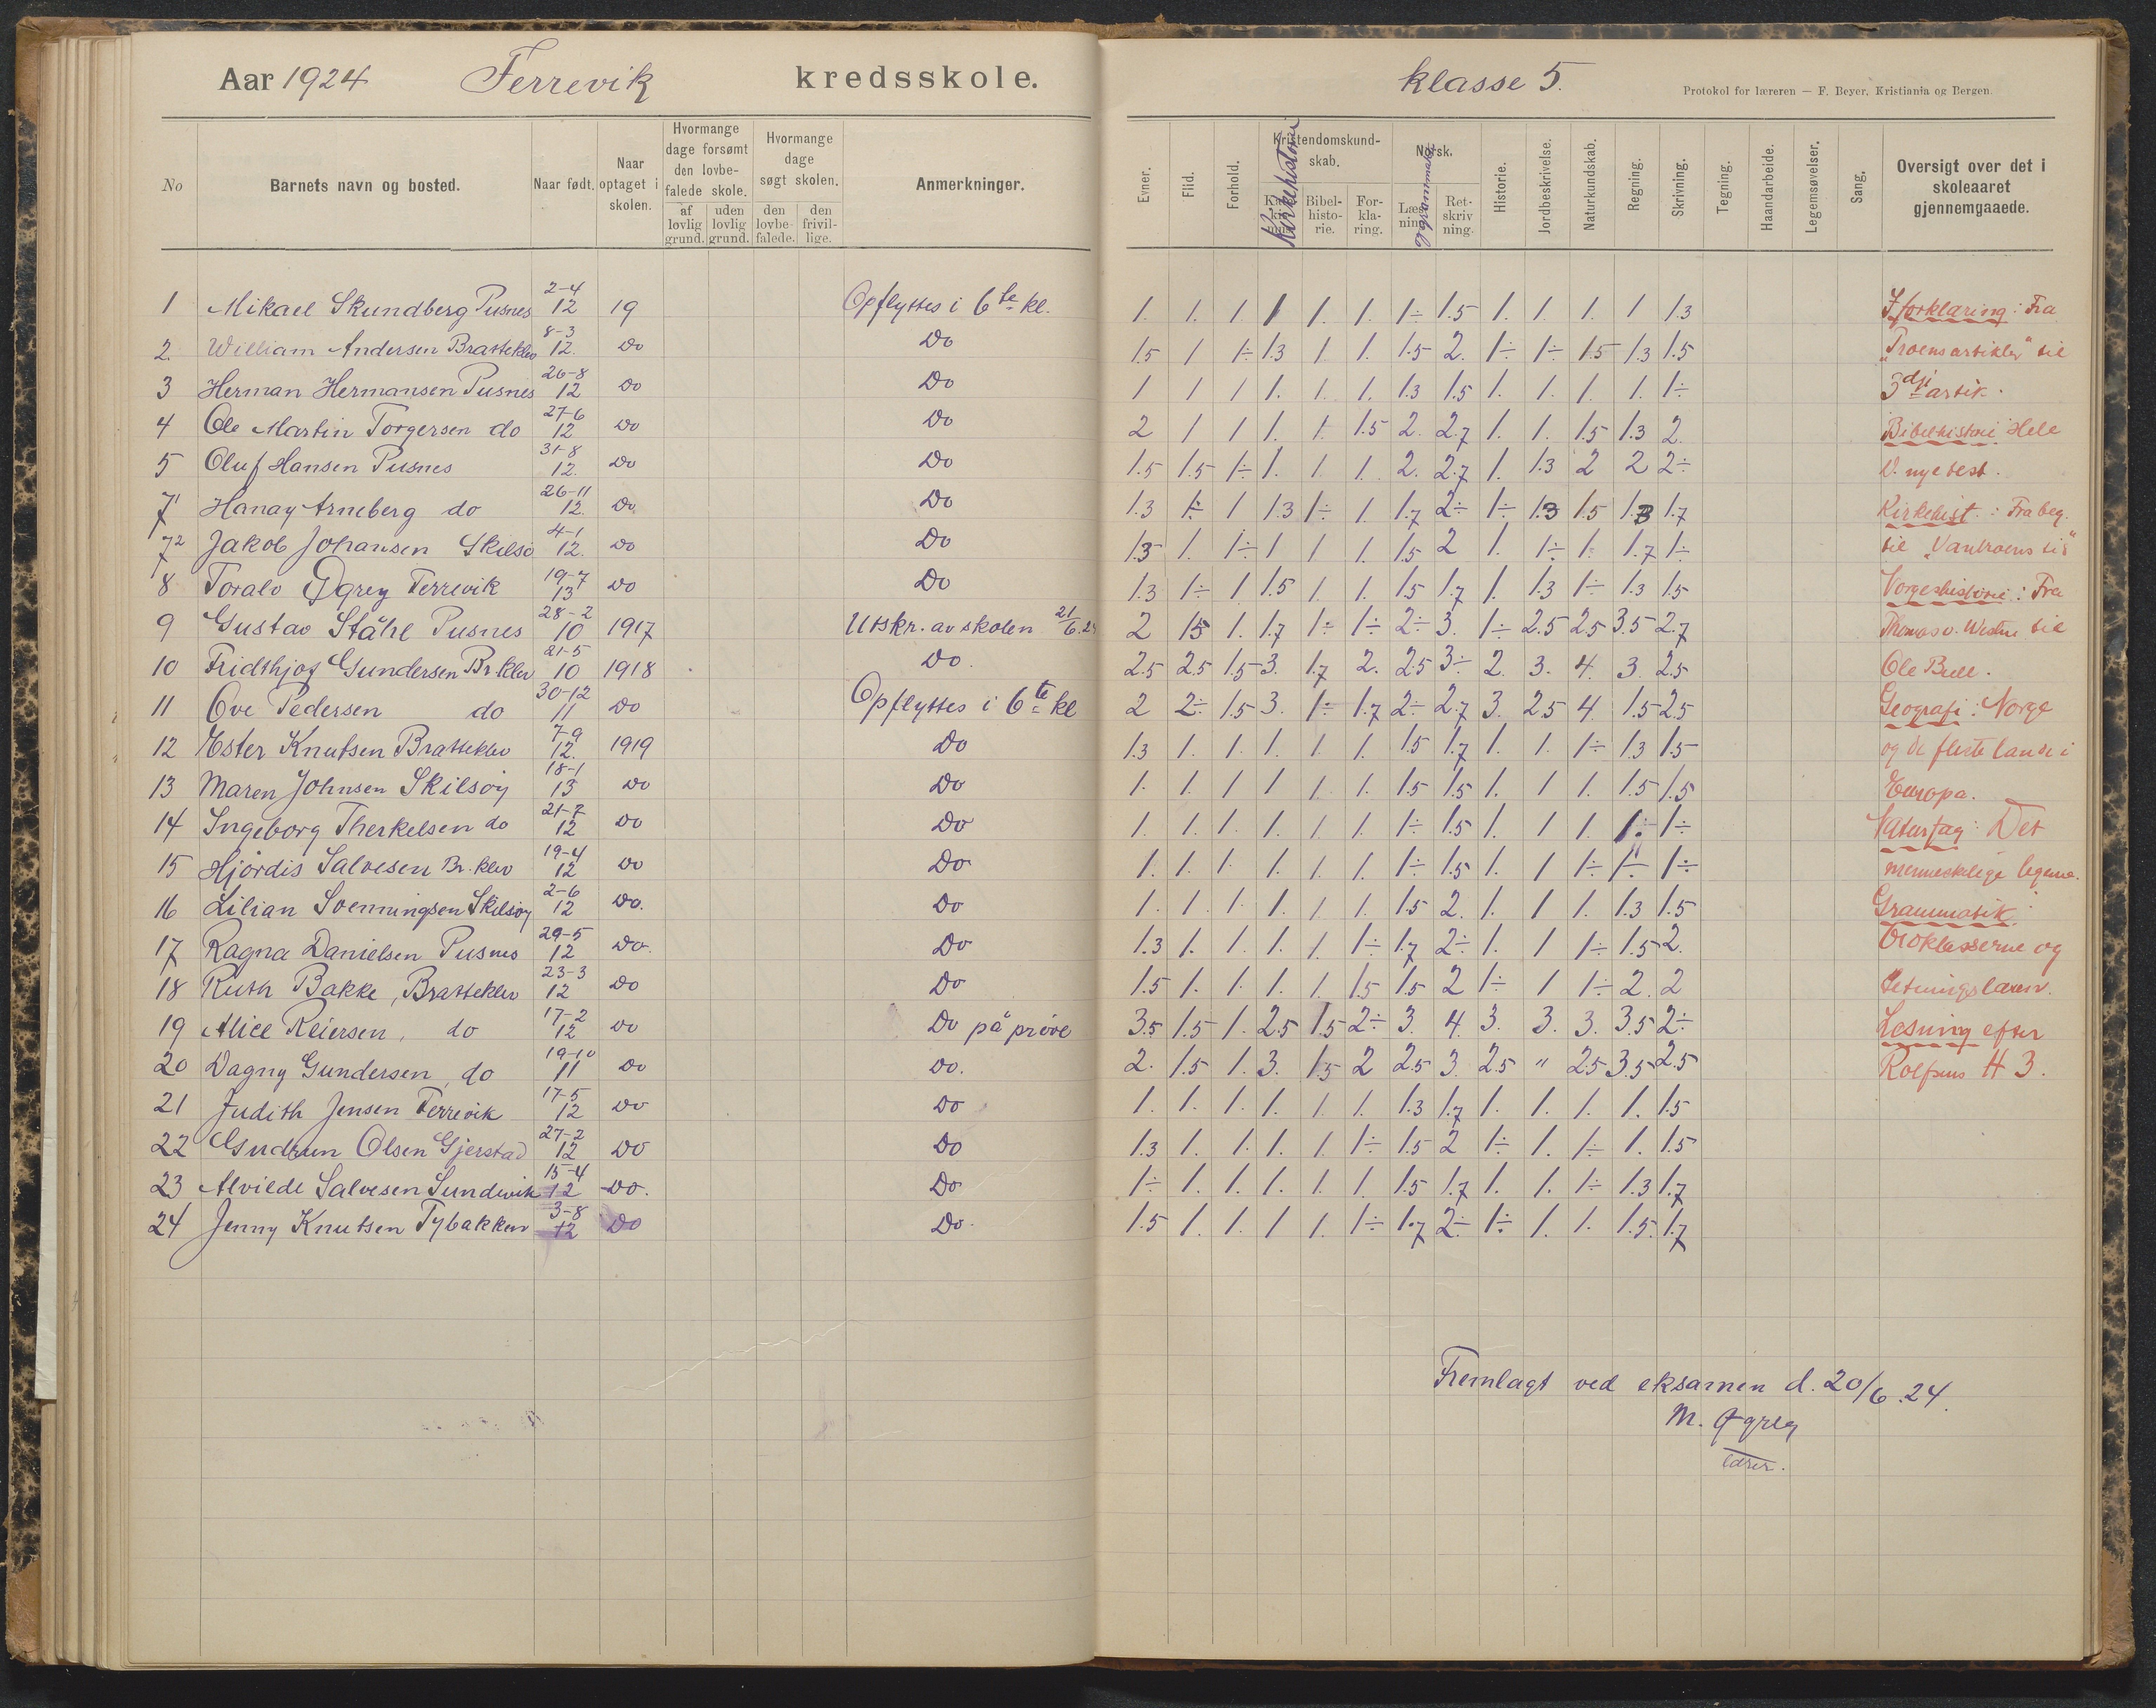 Aar 1924 Ferrevik kredsskole.
No
Barnets navn og bosted.
Naar født.
Naar optaget i skolen.
Hvormange dage forsømt den lovbe-falede skole.
af lovlig grund.
uden lovlig grund.
Hvormange dage søgt skolen.
den lovbe-falede.
den frivil-lige.
Anmerkninger.
1 Mikael Skundberg Pusnes 2-4 12 19 Opflyttes i 6te kl.
2. William Andersen Bratteklev 8-3 12. Do Do
3 Herman Hermansen Pusnes 26-8 12 Do Do
4 Ole Martin Torgersen do 27-6 12 Do Do
5 Oluf Hansen Pusnes 31-8 12. Do Do
7¹ Hanay Arneberg do 26-11 12. Do Do
7² Jakob Johansen Skilsø 4-1 12. Do Do
8 Toralv Øgrey Ferrevik 19-7 13 Do Do
9 Gustav Ståhl Pusnes 28-2 10 1917 Utskr. av skolen 21/6.24
10 Fridthjof Gundersen Br.klev 21-5 10 1918 Do.
11 Ove Pedersen do 30-12 11 Do Opflyttes i 6te kl
12 Ester Knutsen Bratteklev 7-9 12. 1919 Do
13 Maren Johnsen Skilsøy 18-1 13 Do Do
14 Ingeborg Therkelsen do 21-7 12 Do Do
15 Hjørdis Salvesen Br.klev 19-4 12 Do Do
16 Lilian Svenningsen Skilsøy 2-6 12 Do. Do
17 Ragna Danielsen Pusnes 29-5 12 Do. Do
18 Ruth Bakke, Bratteklev 23-3 12 Do Do
19 Alice Reiersen, do 17-2 12 Do Do på prøve
20 Dagny Gundersen, do 19-10 11 Do Do.
21 Judith Jensen Ferrevik 17-5 12 Do Do
22 Gudrun Olsen Gjerstad 27-2 12 Do Do
23 Alvilde Salvesen Sundvik 15-4 12 Do. Do
24 Jenny Knutsen Tybakken 3-8 12 Do Do.
klasse 5.
Protokol for læreren — F. Beyer, Kristiania og Bergen.
Evner.
Flid.
Forhold.
Kristendomskund-skab.
Kirkehistorie
Bibel-histo-rie.
For-kla-ring.
Norsk.
Læs-ning
og grammatik
Ret-skriv ning.
Historie.
Jordbeskrivelse.
Naturkundskab.
Regning.
Skrivning.
Tegning.
Haandarbeide.
Legemsøvelser.
Sang.
Oversigt over det i skoleaaret gjennemgaaede.
1. 1. 1. 1 1. 1. 1÷ 1.5 1. 1. 1. 1 1.3
1.5 1 1÷ 1.3 1 1. 1.5 2. 1÷ 1÷ 1.5 1.3 1.5
1 1 1 1. 1. 1. 1.3 1.5 1. 1. 1. 1. 1÷
2 1 1 1. 1. 1.5 2. 2.7 1. 1. 1.5 1.3 2.
1.5 1.5 1÷ 1. 1 1. 2. 2.7 1. 1.3 2 2 2÷
1.3 1÷ 1 1.3 1÷ 1. 1.7 2÷ 1÷ 1.3 1.5 1.3 1.7
1.3 1. 1÷ 1 1 1. 1.5 2 1. 1÷ 1. 1.7 1÷
1.3 1÷ 1 1.5 1. 1. 1.5 1.7 1. 1.3 1÷ 1.3 1.5
2 1.5 1. 1.7 1÷ 1÷ 2÷ 3. 1÷ 2.5 2.5 3.5 2.7
2.5 2.5 1.5 3. 1.7 2. 2.5 3÷ 2. 3. 4. 3. 2.5
2 2÷ 1.5 3. 1÷ 1.7 2÷ 2.7 3. 2.5 4. 1.5 2.5
1.3 1. 1. 1. 1. 1. 1.5 1.7 1. 1. 1÷ 1.3 1.5
1. 1. 1 1 1. 1. 1.5 1.5 1. 1 1. 1.5 1.5
1. 1. 1. 1. 1. 1. 1÷ 1.5 1. 1 1. 1÷ 1÷
1. 1. 1. 1. 1. 1. 1÷ 1.5 1. 1 1÷ 1÷ 1÷
1. 1. 1. 1. 1. 1. 1.5 2. 1. 1 1. 1.3 1.5
1.3 1. 1. 1. 1. 1÷ 1.7 2÷ 1. 1 1÷ 1.5 2.
1.5 1. 1. 1. 1. 1.5 1.5 2 1÷ 1 1÷ 2. 2
3.5 1.5 1. 2.5 1.5 2÷ 3. 4. 3. 3. 3. 3.5 2÷
2. 1.5 1. 3. 1.5 2 2.5 3. 2.5 " 2.5 3.5 2.5
1. 1. 1. 1. 1. 1. 1.3 1.7 1. 1. 1. 1. 1.5
1.3 1. 1. 1. 1. 1÷ 1.5 2 1÷ 1. 1÷ 1. 1.5
1÷ 1. 1. 1. 1. 1. 1.5 1.7 1. 1. 1÷ 1.3 1.7
1.5 1. 1. 1 1. 1÷ 1.7 2÷ 1÷ 1. 1. 1.5. 1.7
I forklaring: Fra
"Troens artikler" til
3dje artik.
Bibelhistorie Hele
D. nye test.
Kirkehist.: Fra beg.
til "Vantroens tid"
Norgeshistorie: Fra
Thomas v. Westen til
Ole Bull.
Geografi: Norge
og de fleste lande i
Europa.
Naturfag: Det
menneskelige legeme.
Grammatik:
Ordklasserne og
Setningslæren.
Læsning efter
Rolfsens H 3.
Fremlagt ved eksamen d. 20/6.24.
M. Øgrey
lærer.